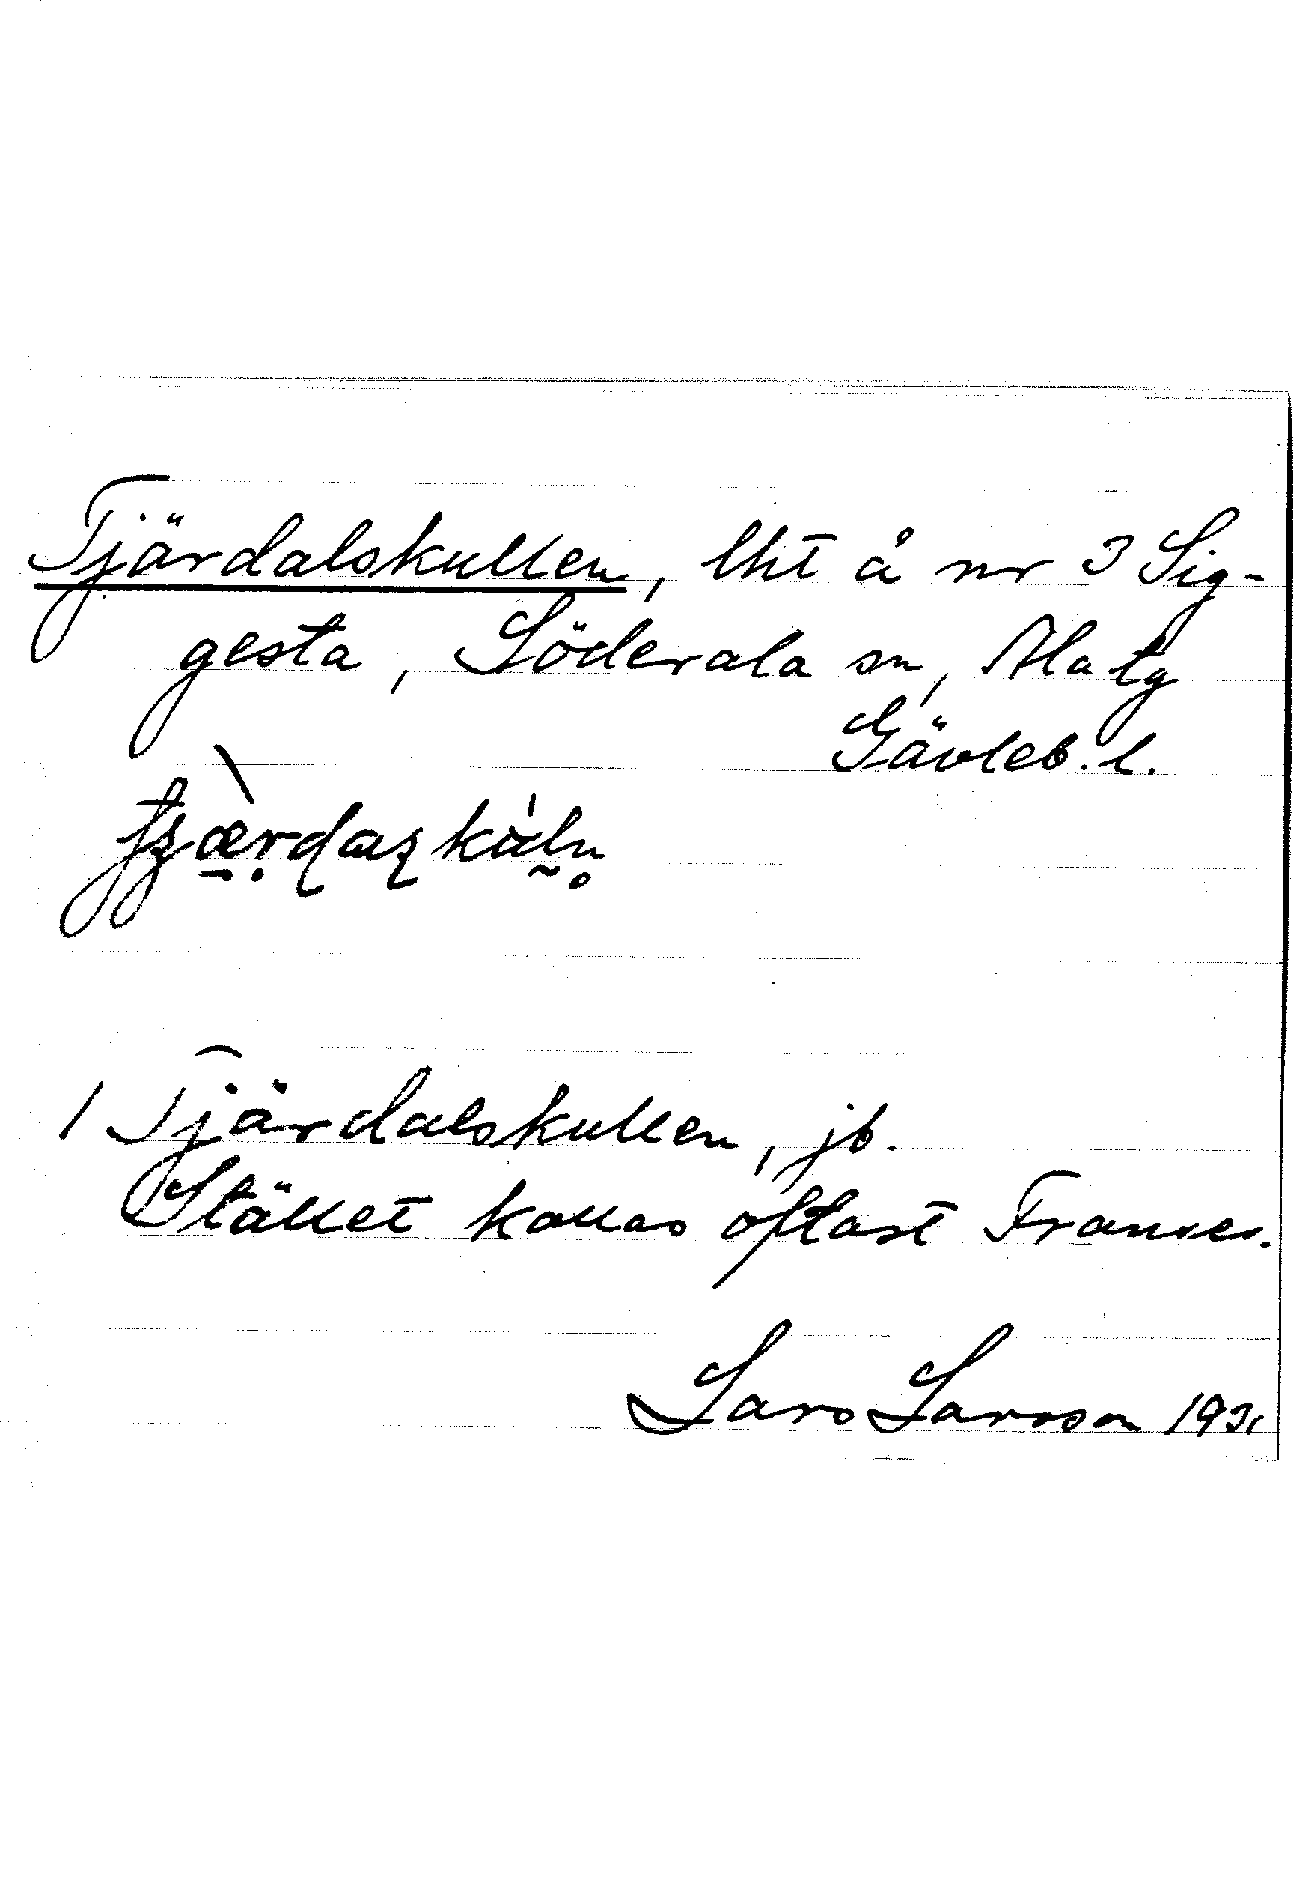 Tjärdalskullen, lht å nr 3 Sig-
gesta, Söderala sn, Ala tg
Gävleb. l.
1 Tjärdalskullen, jb.
Stället kallas oftast Franses.
Lars Larsson 1931